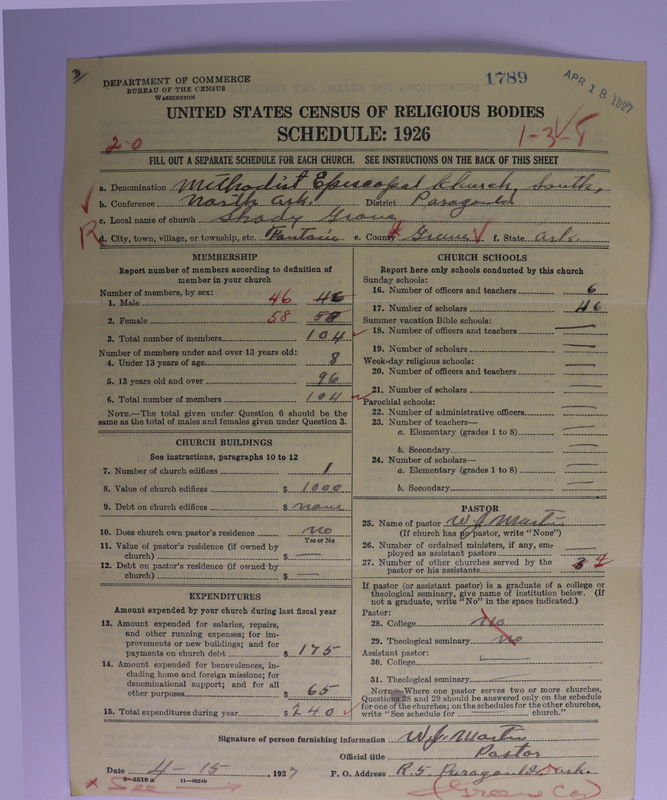 3
DEPARTMENT OF COMMERCE
BUREAU OF THE CENSUS
WASHINGTON
1789
APR 18 1927
UNITED STATES CENSUS OF RELIGIOUS BODIES
SCHEDULE: 1926
2-0
1-3
FILL OUT A SEPARATE SCHEDULE FOR EACH CHURCH. SEE INSTRUCTIONS ON THE BACK OF THIS SHEET
a. Denomination Methodist Episcopal Church, South,
b. Conference North Ark. District Paragould
c. Local name of church Shady Grove
R d. City, town, village, or township, etc. Fontain e. County Green f. State Ark.
MEMBERSHIP
Report number of members according to definition of member in your church
Number of members, by sex:
1. Male 46 46
2. Female 58 58
3. Total number of members 104
Number of members under and over 13 years old:
4. Under 13 years of age 8
5. 13 years old and over 96
6. Total number of members 104
NOTE.—The total given under Question 6 should be the
same as the total of males and females given under Question 3.
CHURCH BUILDINGS
See instructions, paragraphs 10 to 12
7. Number of church edifices 1
8. Value of church edifices $ 1000
9. Debt on church edifices $ none
10. Does church own pastor's residence No
Yes or No
11. Value of pastor's residence (if owned by
church) $ —
12. Debt on pastor's residence (if owned by
church) $ —
EXPENDITURES
Amount expended by your church during last fiscal year
13. Amount expended for salaries, repairs,
and other running expenses; for im-
provements or new buildings; and for
payments on church debt $ 175
14. Amount expended for benevolences, in-
cluding home and foreign missions; for
denominational support; and for all
other purposes $ 65
15. Total expenditures during year $ 240
CHURCH SCHOOLS
Report here only schools conducted by this church
Sunday schools:
16. Number of officers and teachers 6
17. Number of scholars 46
Summer vacation Bible schools:
18. Number of officers and teachers —
19. Number of scholars —
Week-day religious schools:
20. Number of officers and teachers —
21. Number of scholars —
Parochial schools:
22. Number of administrative officers —
23. Number of teachers—
a. Elementary (grades 1 to 8) —
b. Secondary —
24. Number of scholars—
a. Elementary (grades 1 to 8) —
b. Secondary —
PASTOR
25. Name of pastor W. J. Martin
(If church has no pastor, write "None")
26. Number of ordained ministers, if any, em-
ployed as assistant pastors —
27. Number of other churches served by the
pastor or his assistants 3
If pastor (or assistant pastor) is a graduate of a college or
theological seminary, give name of institution below. (If
not a graduate, write "No" in the space indicated.)
Pastor:
28. College No
29. Theological seminary No
Assistant pastor:
30. College —
31. Theological seminary —
NOTE.—Where one pastor serves two or more churches,
Questions 28 and 29 should be answered only on the schedule
for one of the churches; on the schedules for the other churches,
write "See schedule for church."
Signature of person furnishing information W. J. Martin
Official title Pastor
Date 4-15, 1927 P. O. Address R. 5. Paragould Ark.
8-5518 a 11-9664b
x See (Green Co)